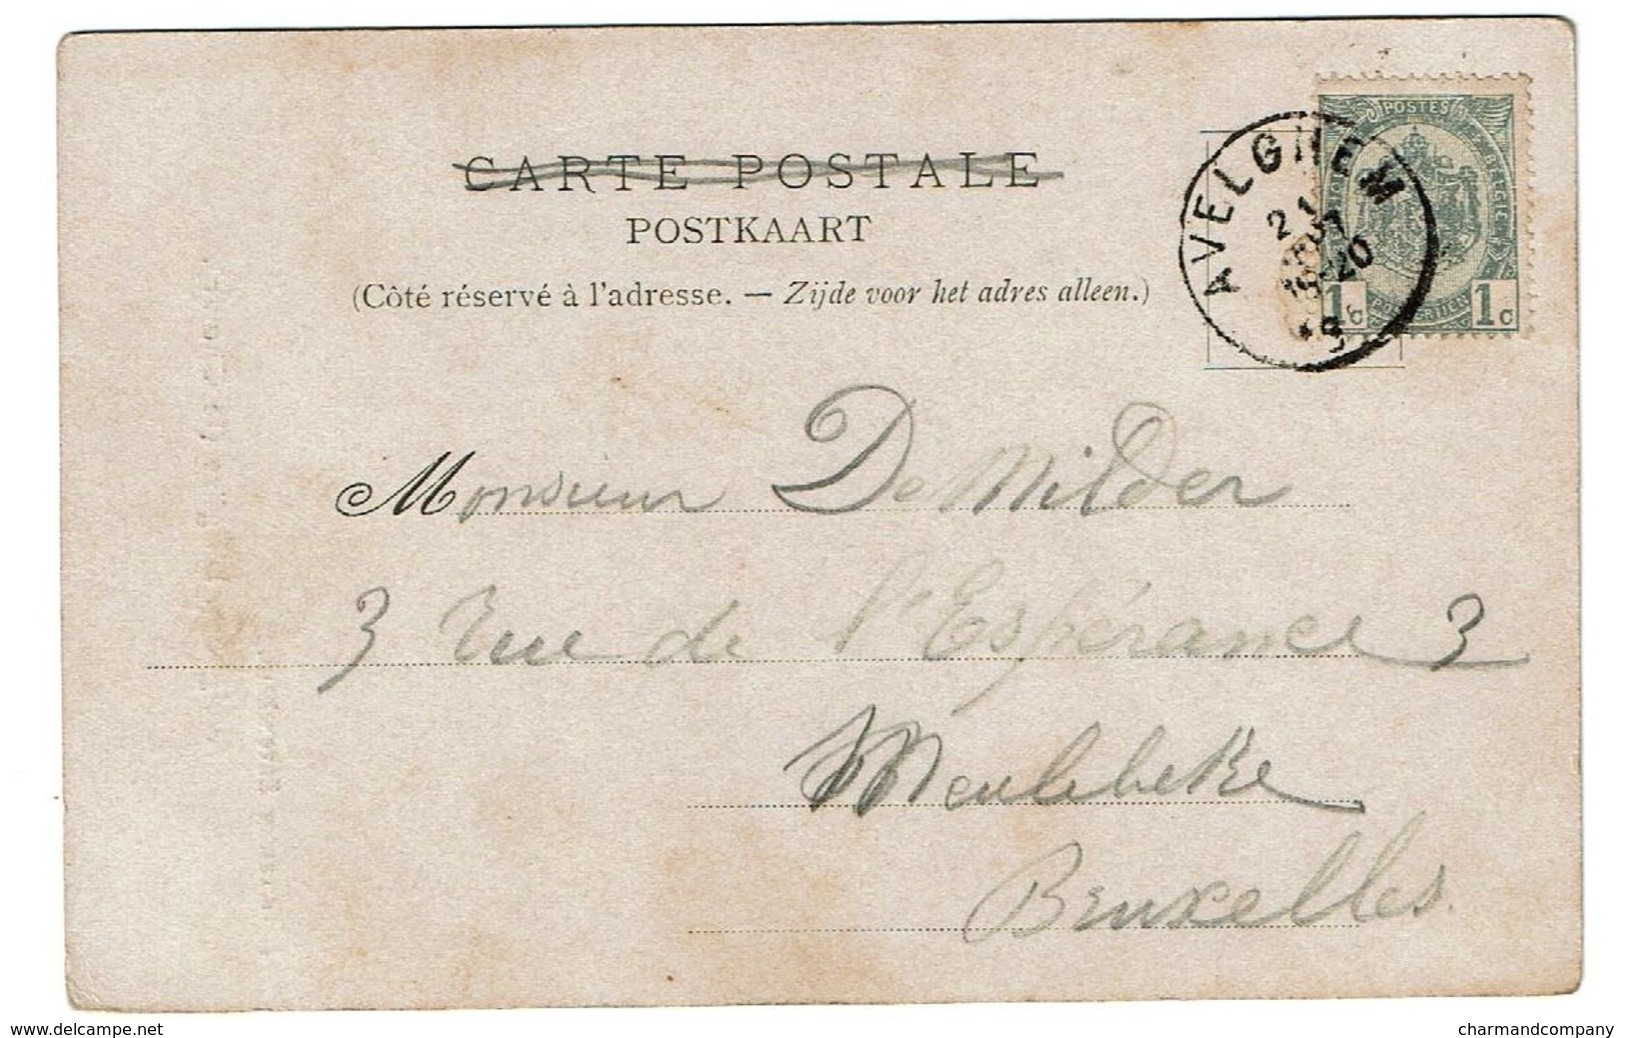 CARTE POSTALE
POSTKAART
(Côté réservé à l'adresse. — Zijde voor het adres alleen.)
POSTES
AVELGHEM
21
1c
1c
Monsieur De Milder
3 Rue de l'Espérance 3
Meulebeke
Bruxelles.
www.delcampe.net
charmandcompany